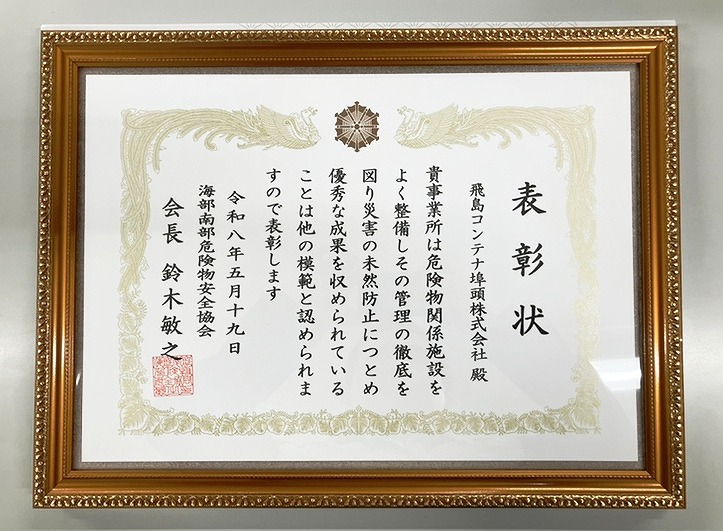 表彰状
飛島コンテナ埠頭株式会社 殿
貴事業所は危険物関係施設を
よく整備しその管理の徹底を
図り災害の未然防止につとめ
優秀な成果を収められている
ことは他の模範と認められま
すので表彰します
令和八年五月十九日
海部南部危険物安全協会
会長 鈴木敏之